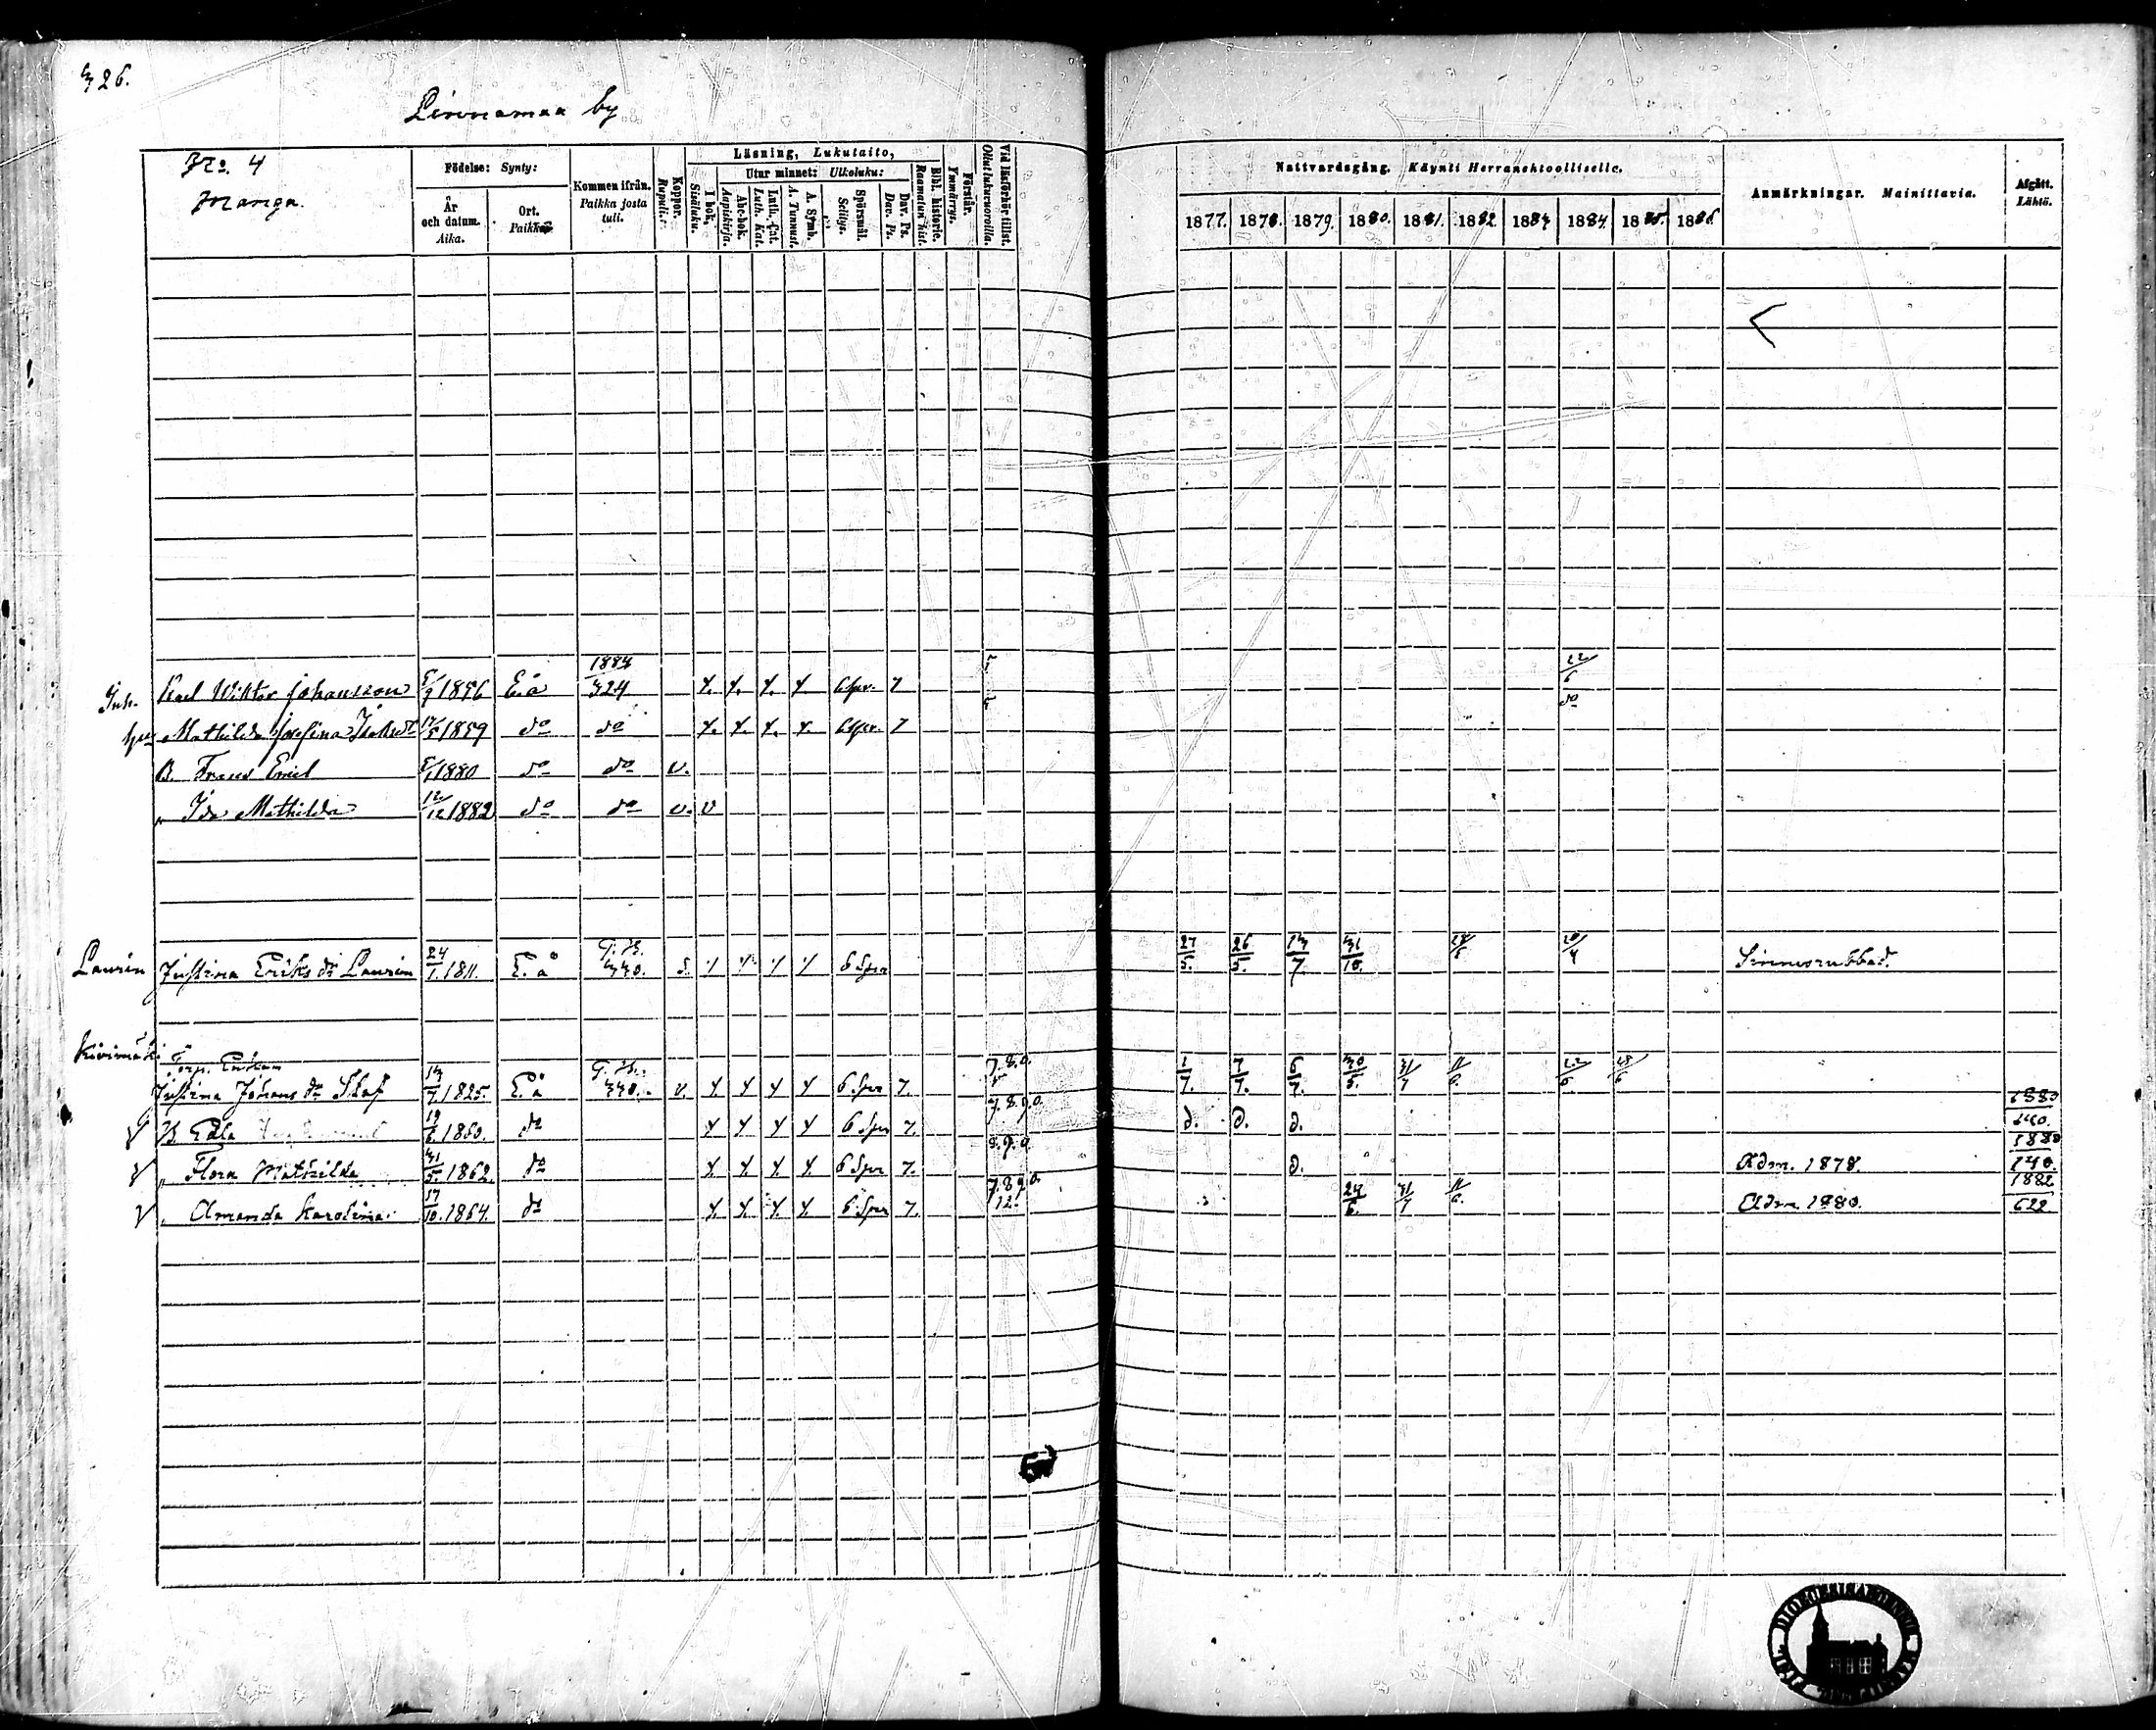 326.
Linnamaa by
No. 4
Manga.
Födelse: Synty:
År och datum. Aika.
Ort. Paikka
Kommen ifrån. Paikka josta tuli.
Koppor. Rupuli.
Läsning, Lukutaito,
I bok, Sisäluku.
Utur minnet: Ulkoluku:
Abc-bok. Aapiskirja.
Luth. Cat. Luth. Kat.
A. Symb. A. Tunnust.
Spörsmål. Selitys.
Dav. Ps. Dav. Ps.
Bibl. historie. Raamatun hist.
Förstår. Ymmärrys.
Vid läsförhör tillst. Ollut lukuvuoroilla.
Nattvardsgång. Käynti Herranehtoollisella.
1877. 1878. 1879. 1880. 1881. 1882. 1883 1884. 1885. 1886.
Anmärkningar. Mainittavia.
Afgått. Lähtö.
Inh. Karl Wiktor Johansson 5/9 1856 E.å 1884 324 6 Spr. 7 22/6
hu Mathilda Josefina 1859 do do 6 Spr. 7 do
B. Frans Emil 1880 do do v.
" Ida Mathilda 12/12 1882 do do v. v
Laurén Justina Eriks dr Laurén 24/1. 1811. E.å G. B. 340. S. 6 Spr 27/5. 26/5. 13/7. 31/10. 28/5 20/4 Sinnesrubbad.
Kivimäki
Torp. Enkan
Justina Johans dr Skaf 13/7. 1825. E.å G. B. 340. v. 6 Spr 7. 7.8.0. 1/7. 7/7. 6/7. 30/5. 31/7 11/6. 22/6. 28/6
B Edla 19/6. 1860. do 6 Spr 7. 7.8.9.0. d. d. d. 1880 340.
" Flora Mathilda 31/5. 1862. do 6 Spr 7. 8.9.0. d. Adm. 1878. 1880 340.
" Amanda Karolina 17/10. 1864. do 6 Spr 7. 7.8.9.0. 12. 24/6. 31/7 11/6. Adm. 1880. 1882 622